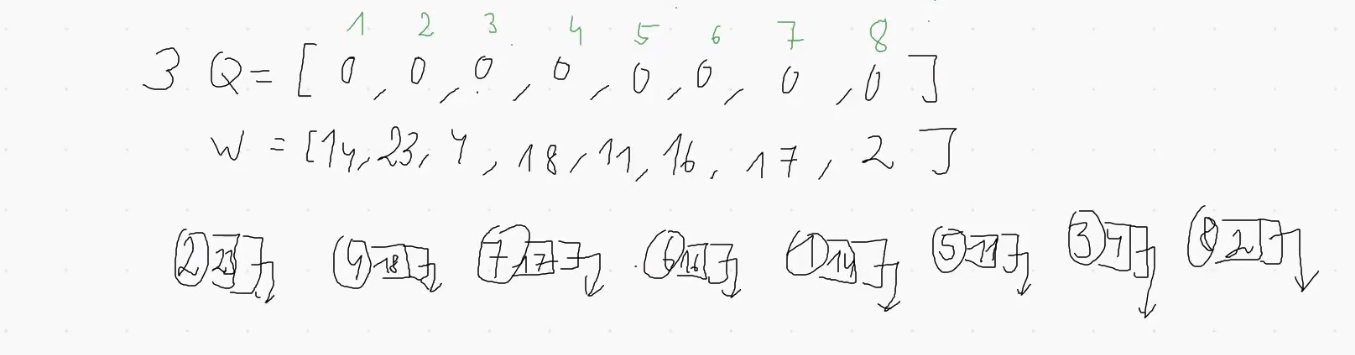 1 2 3 4 5 6 7 8
3 Q = [ 0 , 0 , 0 , 0 , 0 , 0 , 0 , 0 ]
W = [14, 23, 4, 18, 11, 16, 17, 2 ]
2 23 4 18 7 17 6 16 1 14 5 11 3 4 8 2